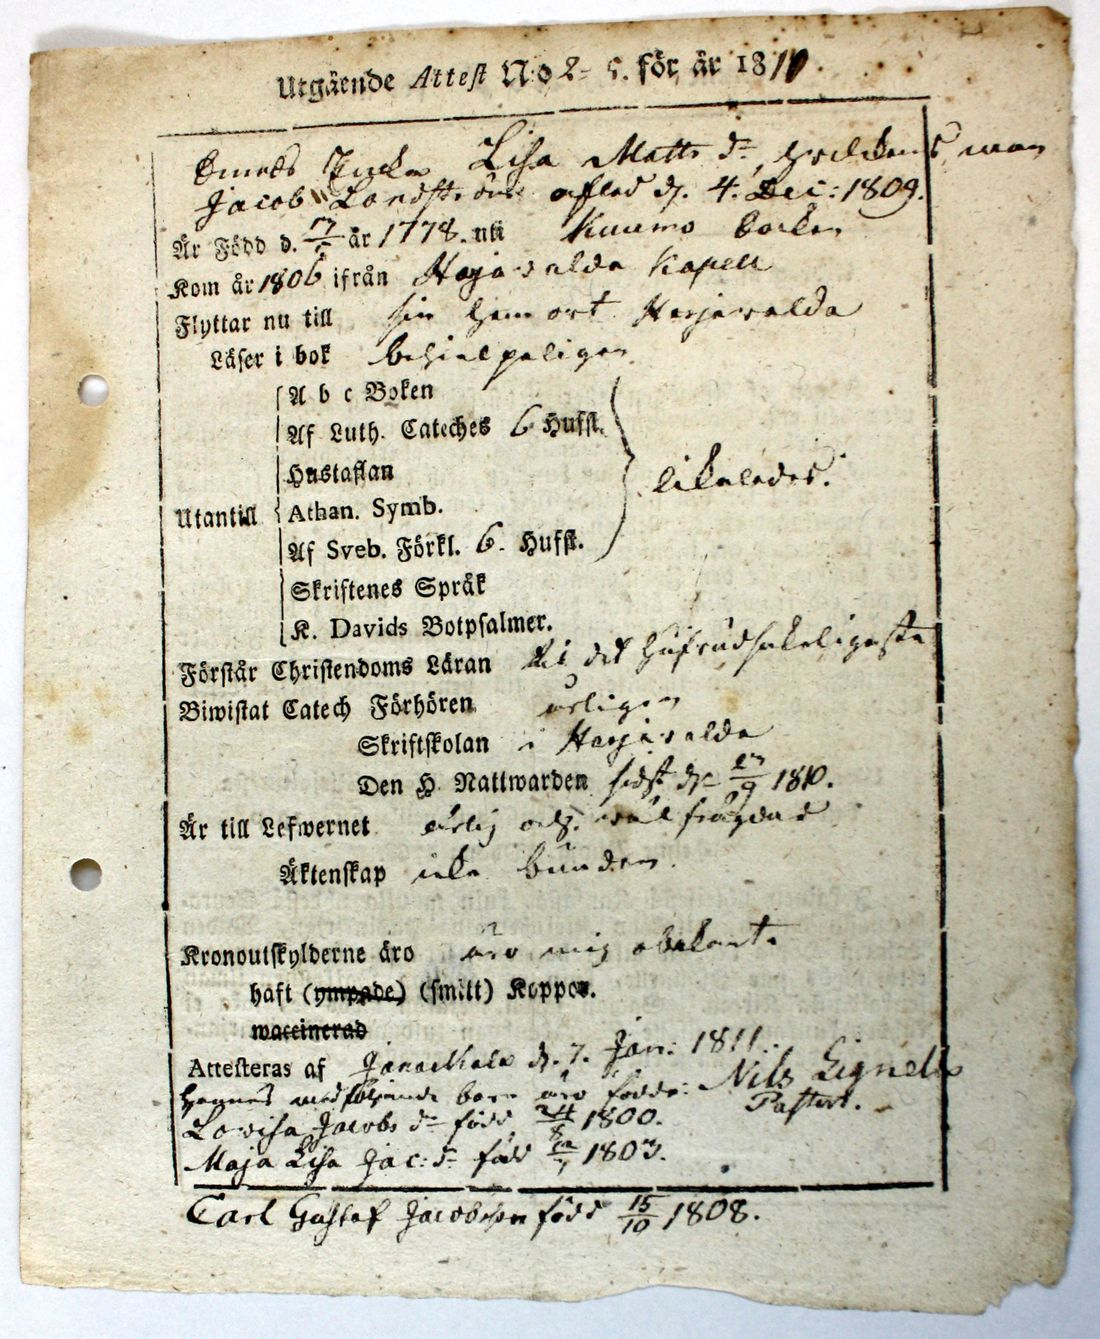 Utgående Attest N:o 2-5. för år 1811.
Enkan Lisa Matts d:r, hvilkens man
Jacob Landström afled d. 4. Dec: 1809.
Är Född d. 17/ år 1778. uti Kuumo Socken
Kom år 1806 ifrån Harjavalda Kapell
Flyttar nu till sin hemort Harjavalda
Läser i bok behielpeligen
A b c Boken
Af Luth. Cateches 6 Hufst.
Hustaflan
Utantill Athan. Symb. likaledes.
Af Sveb. Förkl. 6. Hufst.
Skriftenes Språk
K. Davids Botpsalmer.
Förstår Christendoms Läran til det hufvudsakeligaste
Biwistat Catech Förhören årligen
Skriftskolan i Harjavalda
Den H. Nattwarden sidst d. 23/9 1810.
Är till Lefwernet ärlig och wäl frägdad
Äktenskap icke bunden.
Kronoutskylderne äro äro mig obekante
haft (ympade) (smitt) Koppor.
waccinerad
Attesteras af d. 7. Jan: 1811.
Hennes medföljande barn äro födde: Nils Lignell
Lovisa Jacobs d:r född 24/8 1800. Pastor.
Maja Lisa Jac: d:r född 1803.
Carl Gustaf Jacobsson född 15/10 1808.